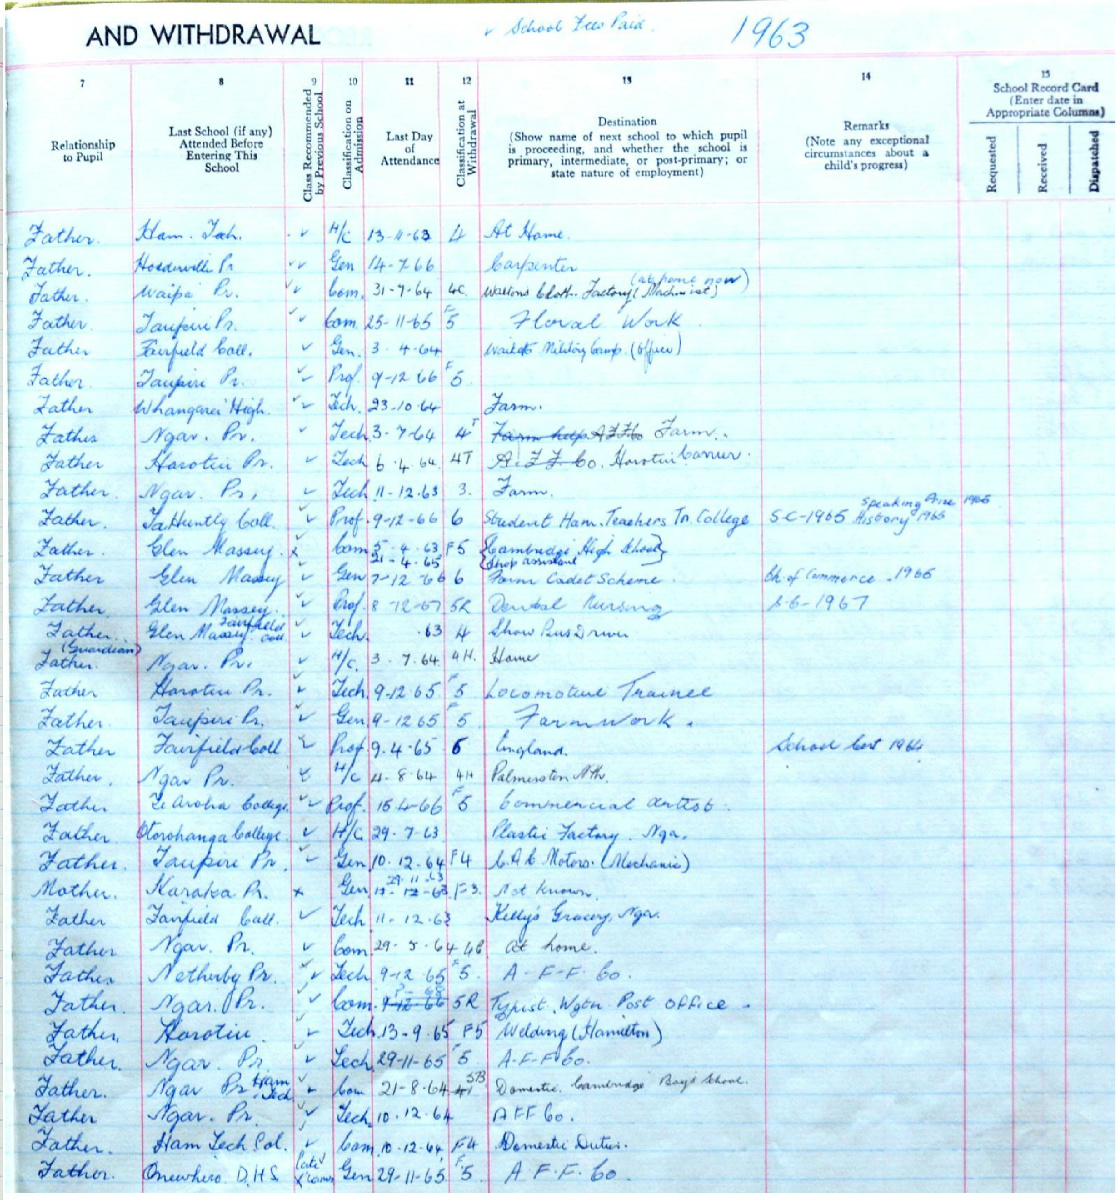 AND WITHDRAWAL ✓ School Fees Paid. 1963
7 8 9 10 11 12 13 14 15
Relationship to Pupil
Last School (if any) Attended Before Entering This School
Class Recommended by Previous School
Classification on Admission
Last Day of Attendance
Classification at Withdrawal
Destination
(Show name of next school to which pupil is proceeding, and whether the school is primary, intermediate, or post-primary; or state nature of employment)
Remarks
(Note any exceptional circumstances about a child's progress)
School Record Card
(Enter date in Appropriate Columns)
Requested Received Dispatched
Father. Ham. Tech. ✓ H/C 13-11-63 4 At Home.
Father. Pr ✓✓ Gen 14-7-66 Carpenter
Father. Waipa Pr. ✓✓ Com. 31-7-64 4C. Cloth. Factory (Machinist) (at home now)
Father Taupiri Pr. ✓✓ Com. 25-11-65 F5 Floral Work
Father Fairfield Coll. ✓ Gen. 3-4-64 Military Camp. (Office)
Father. Taupiri Pr. ✓✓ Prof. 9-12-66 F5.
Father Whangarei High. ✓✓ Tech. 23-10-64 Farm.
Father Ngar. Pr. ✓ Tech. 3-7-64 4T Farm help AFFCo Farm.
Father Horotiu Pr. ✓ Tech 6.4.64 4T A.F.F. Co. Horotiu Carrier.
Father. Ngar. Pr. ✓ Tech 11-12.63 3. Farm.
Father. Huntly Coll. ✓ Prof. 9-12-66 6 Student Ham. Teachers Tr. College S.C-1965 Speaking Prize 1965 History 1965
Father. Glen Massey. x Com 5-4.63 21-4.65 F5 {Cambridge High School} {Shop assistant
Father Glen Massey ✓ Gen 7-12-66 6 Farm Cadet Scheme. Ch. of Commerce. 1965
Father Glen Massey. ✓ Prof. 8-12-67 5R Dental Nursing 1967
Father. (Guardian) Glen Massey. Fairfield Coll ✓ Tech. .63 4 Bus Driver
Father. Ngar. Pr. ✓ H/C. 3.7.64 4H. Home
Father Horotiu Pr. ✓ Tech. 9-12.65 F5 Locomotive Trainee
Father. Taupiri Pr. ✓ Gen. 9-12 65 F5 Farm Work.
Father. Fairfield Coll ✓ Prof 9.4-65 6 England. School Cert 1964
Father. Ngar Pr. ✓ H/C 4-8-64 4H Palmerston Nth.
Father Te Aroha College. ✓✓ Prof. 15.4-66 F5 Commercial artist.
Father Otorohanga College. ✓ H/C 29-7-63 Plastic Factory. Nga.
Father. Taupiri Pr. ✓ Gen 10.12.64 F4 Motors. (Mechanic)
Mother. Karaka Pr. x Gen. 29.11.63 F3. Not known.
Father Fairfield Coll. ✓ Tech 11-12.63 Kelly's Grocery, Nga.
Father Ngar. Pr. ✓ Com. 29-5-64 4C at home.
Father Netherby Pr. ✓✓ Tech. 9-12 65 F5. A-F-F-Co.
Father. Ngar. Pr. ✓ Com. 9-12-66 5R Typist. Wgtn Post Office.
Father. Horotiu ✓ Tech. 13-9.65 F5 Welding (Hamilton)
Father. Ngar. Pr. ✓ Tech. 29-11-65 F5 A-F-F-Co.
Father. Ngar Pr. Ham Tech ✓ Com 21-8-64 5B Domestic. Cambridge Boys School.
Father Ngar. Pr. ✓ Tech. 10.12.64 AFFCo.
Father. Ham Tech Col. ✓ Com. 10.12.64 F4 Domestic Duties.
Father. Onewhero. D.H.S. Gen 29-11-65 F5 A.F.F. Co